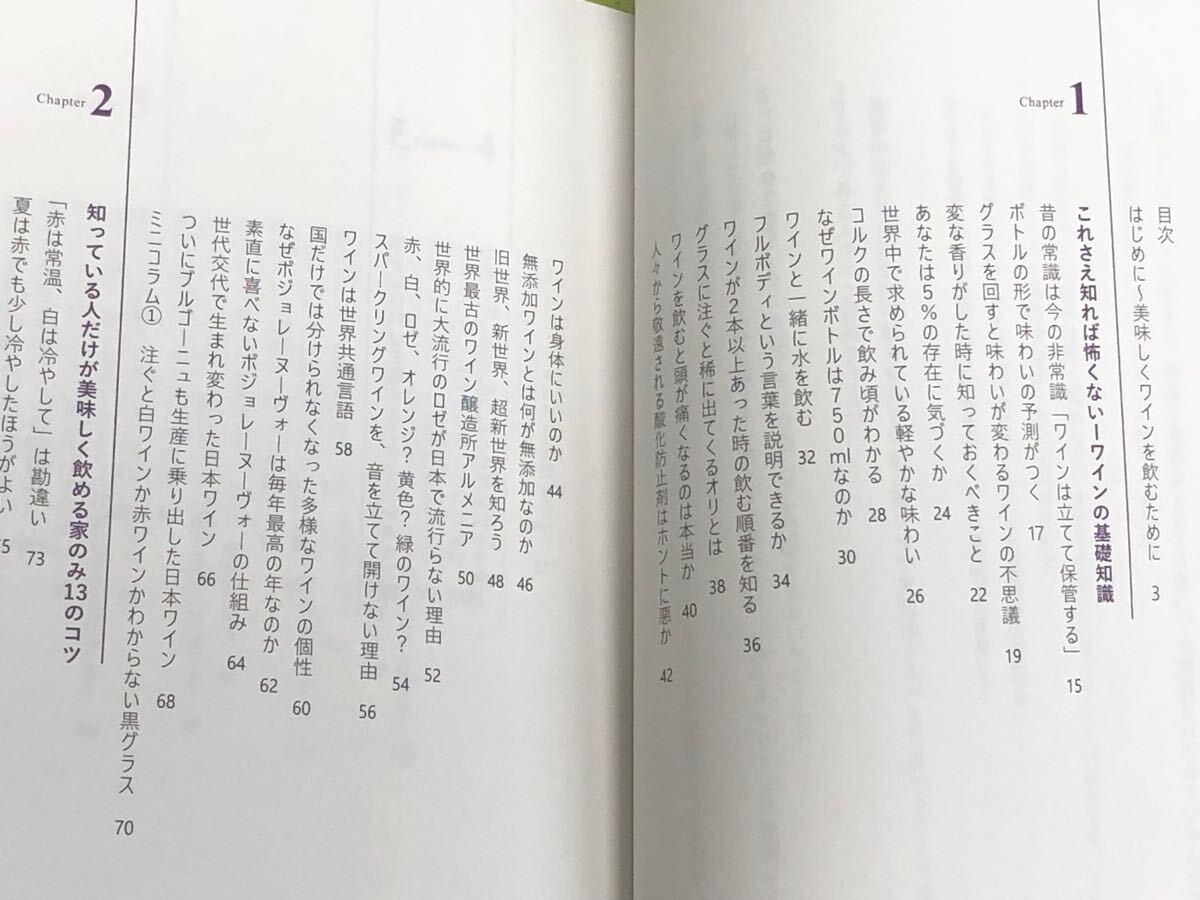 目次
はじめに～美味しくワインを飲むために 3
Chapter 1
これさえ知れば怖くないーワインの基礎知識
昔の常識は今の非常識「ワインは立てて保管する」 15
ボトルの形で味わいの予測がつく 17
グラスを回すと味わいが変わるワインの不思議 19
変な香りがした時に知っておくべきこと 22
あなたは5%の存在に気づくか 24
世界中で求められている軽やかな味わい 26
コルクの長さで飲み頃がわかる 28
なぜワインボトルは750mlなのか 30
ワインと一緒に水を飲む 32
フルボディという言葉を説明できるか 34
ワインが2本以上あった時の飲む順番を知る 36
グラスに注ぐと稀に出てくるオリとは 38
ワインを飲むと頭が痛くなるのは本当か 40
人々から敬遠される酸化防止剤はホントに悪か 42
ワインは身体にいいのか 44
無添加ワインとは何が無添加なのか 46
旧世界、新世界、超新世界を知ろう 48
世界最古のワイン醸造所アルメニア 50
世界的に大流行のロゼが日本で流行らない理由 52
赤、白、ロゼ、オレンジ?黄色?緑のワイン? 54
スパークリングワインを、音を立てて開けない理由 56
ワインは世界共通言語 58
国だけでは分けられなくなった多様なワインの個性 60
なぜボジョレーヌーヴォーは毎年最高の年なのか 62
素直に喜べないボジョレーヌーヴォーの仕組み 64
世代交代で生まれ変わった日本ワイン 66
ついにブルゴーニュも生産に乗り出した日本ワイン 68
ミニコラム① 注ぐと白ワインか赤ワインかわからない黒グラス 70
Chapter 2
知っている人だけが美味しく飲める家のみ13のコツ
「赤は常温、白は冷やして」は勘違い 73
夏は赤でも少し冷やしたほうがよい 75